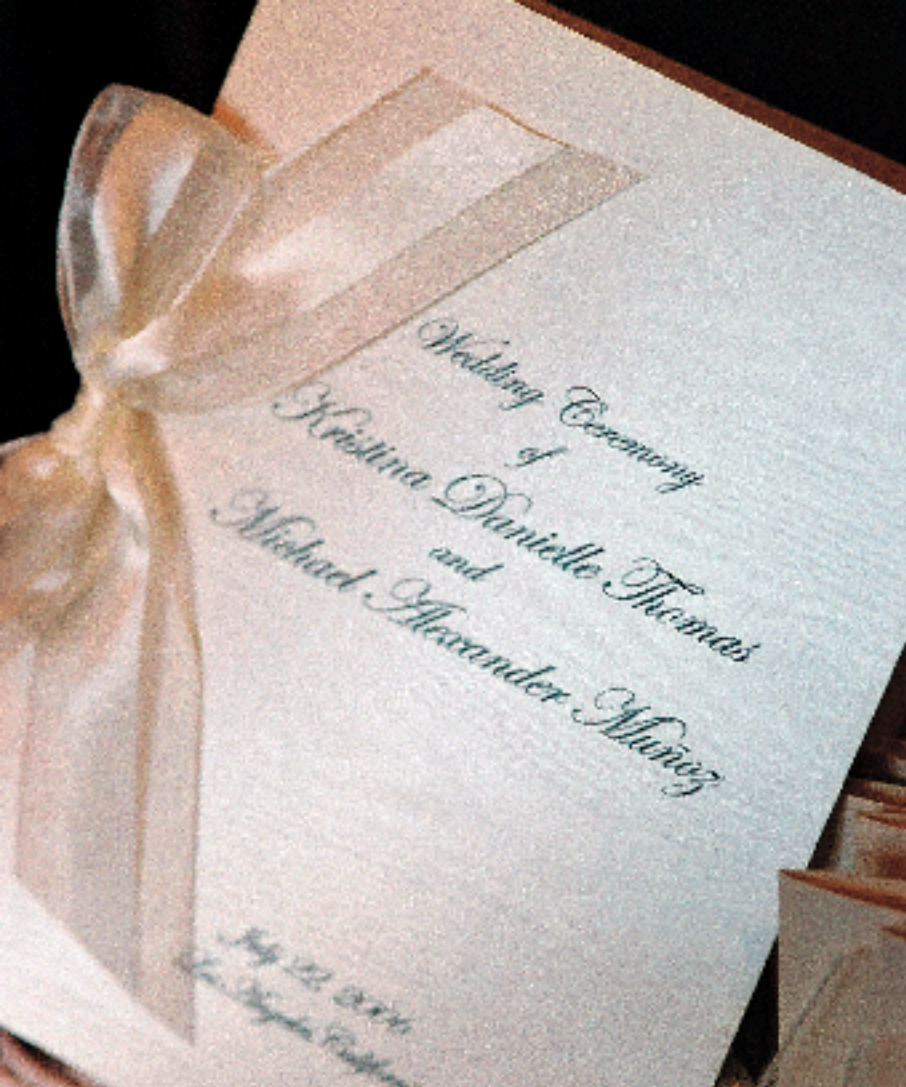 Wedding Ceremony
of
Kristina Danielle Thomas
and
Michael Alexander Muñoz
July 22,
Los Angeles, California